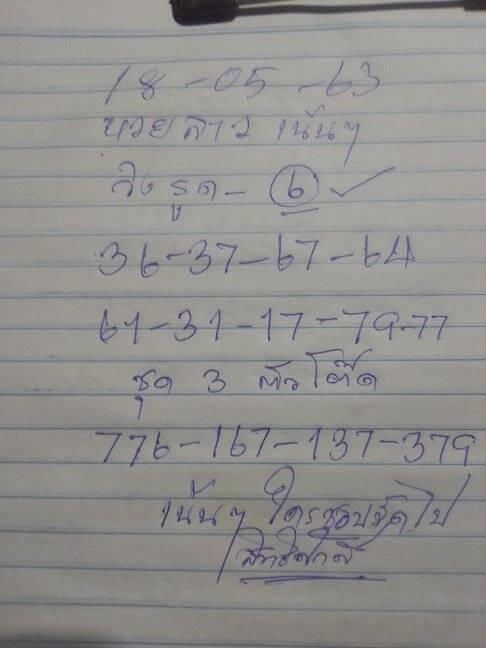 18-05-63
หวยลาว เน้นๆ
วิ่ง รูด - 6
36-37-67-64
61-31-17-79-77
ชุด 3 ตัวโต๊ด
776-167-137-379
เน้นๆ ใครชอบจัดไป